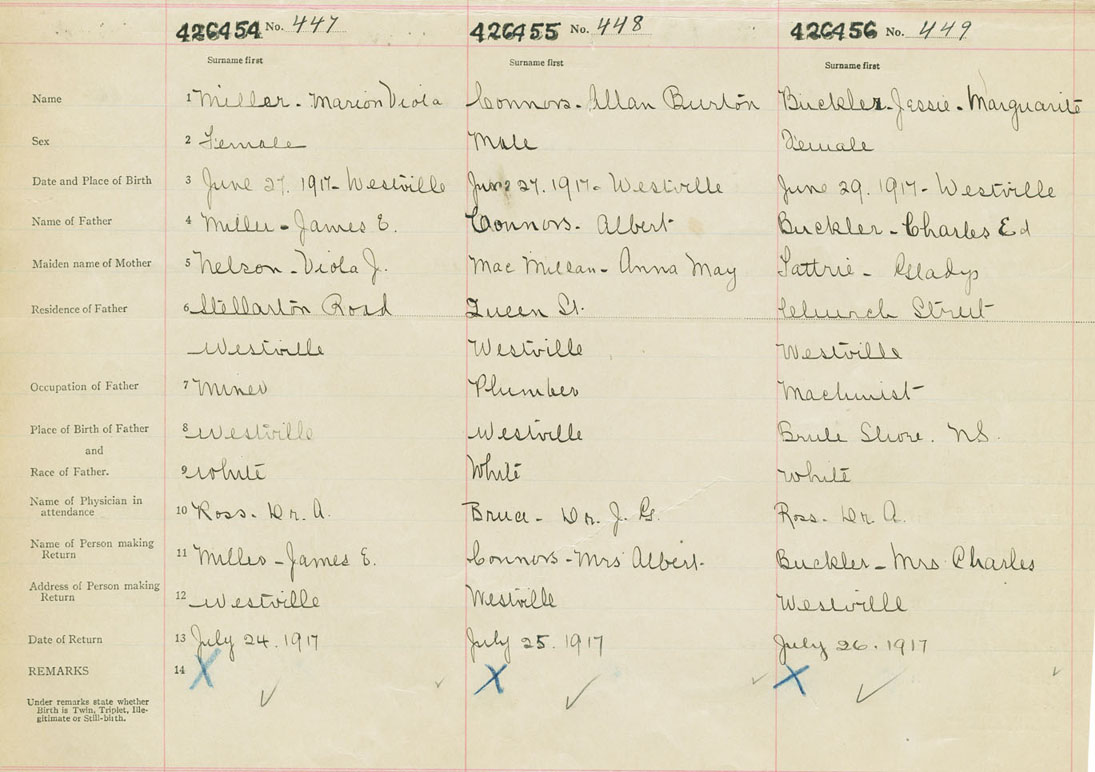 426454 No. 447 426455 No. 448 426456 No. 449
Surname first Surname first Surname first
Name 1 Miller - Marion Viola Connors - Allan Burton Buckler - Jessie - Marguarite
Sex 2 Female Male Female
Date and Place of Birth 3 June 27. 1917 - Westville June 27. 1917 - Westville June 29. 1917 - Westville
Name of Father 4 Miller - James E. Connors - Albert Buckler - Charles Ed
Maiden name of Mother 5 Nelson - Viola J. Mac Millan - Anna May Tattrie - Gladys
Residence of Father 6 Stellarton Road Queen St. Church Street
Westville Westville Westville
Occupation of Father 7 Miner Plumber Machinist
Place of Birth of Father 8 Westville Westville Brule Shore. N.S.
and
Race of Father. 9 White White White
Name of Physician in
attendance 10 Ross - Dr. A. Bruce - Dr. J. G. Ross - Dr. A.
Name of Person making
Return 11 Miller - James E. Connors - Mrs Albert - Buckler - Mrs Charles
Address of Person making
Return 12 Westville Westville Westville
Date of Return 13 July 24. 1917 July 25. 1917 July 26. 1917
REMARKS 14 X X X
Under remarks state whether
Birth is Twin, Triplet, Ille-
gitimate or Still-birth.